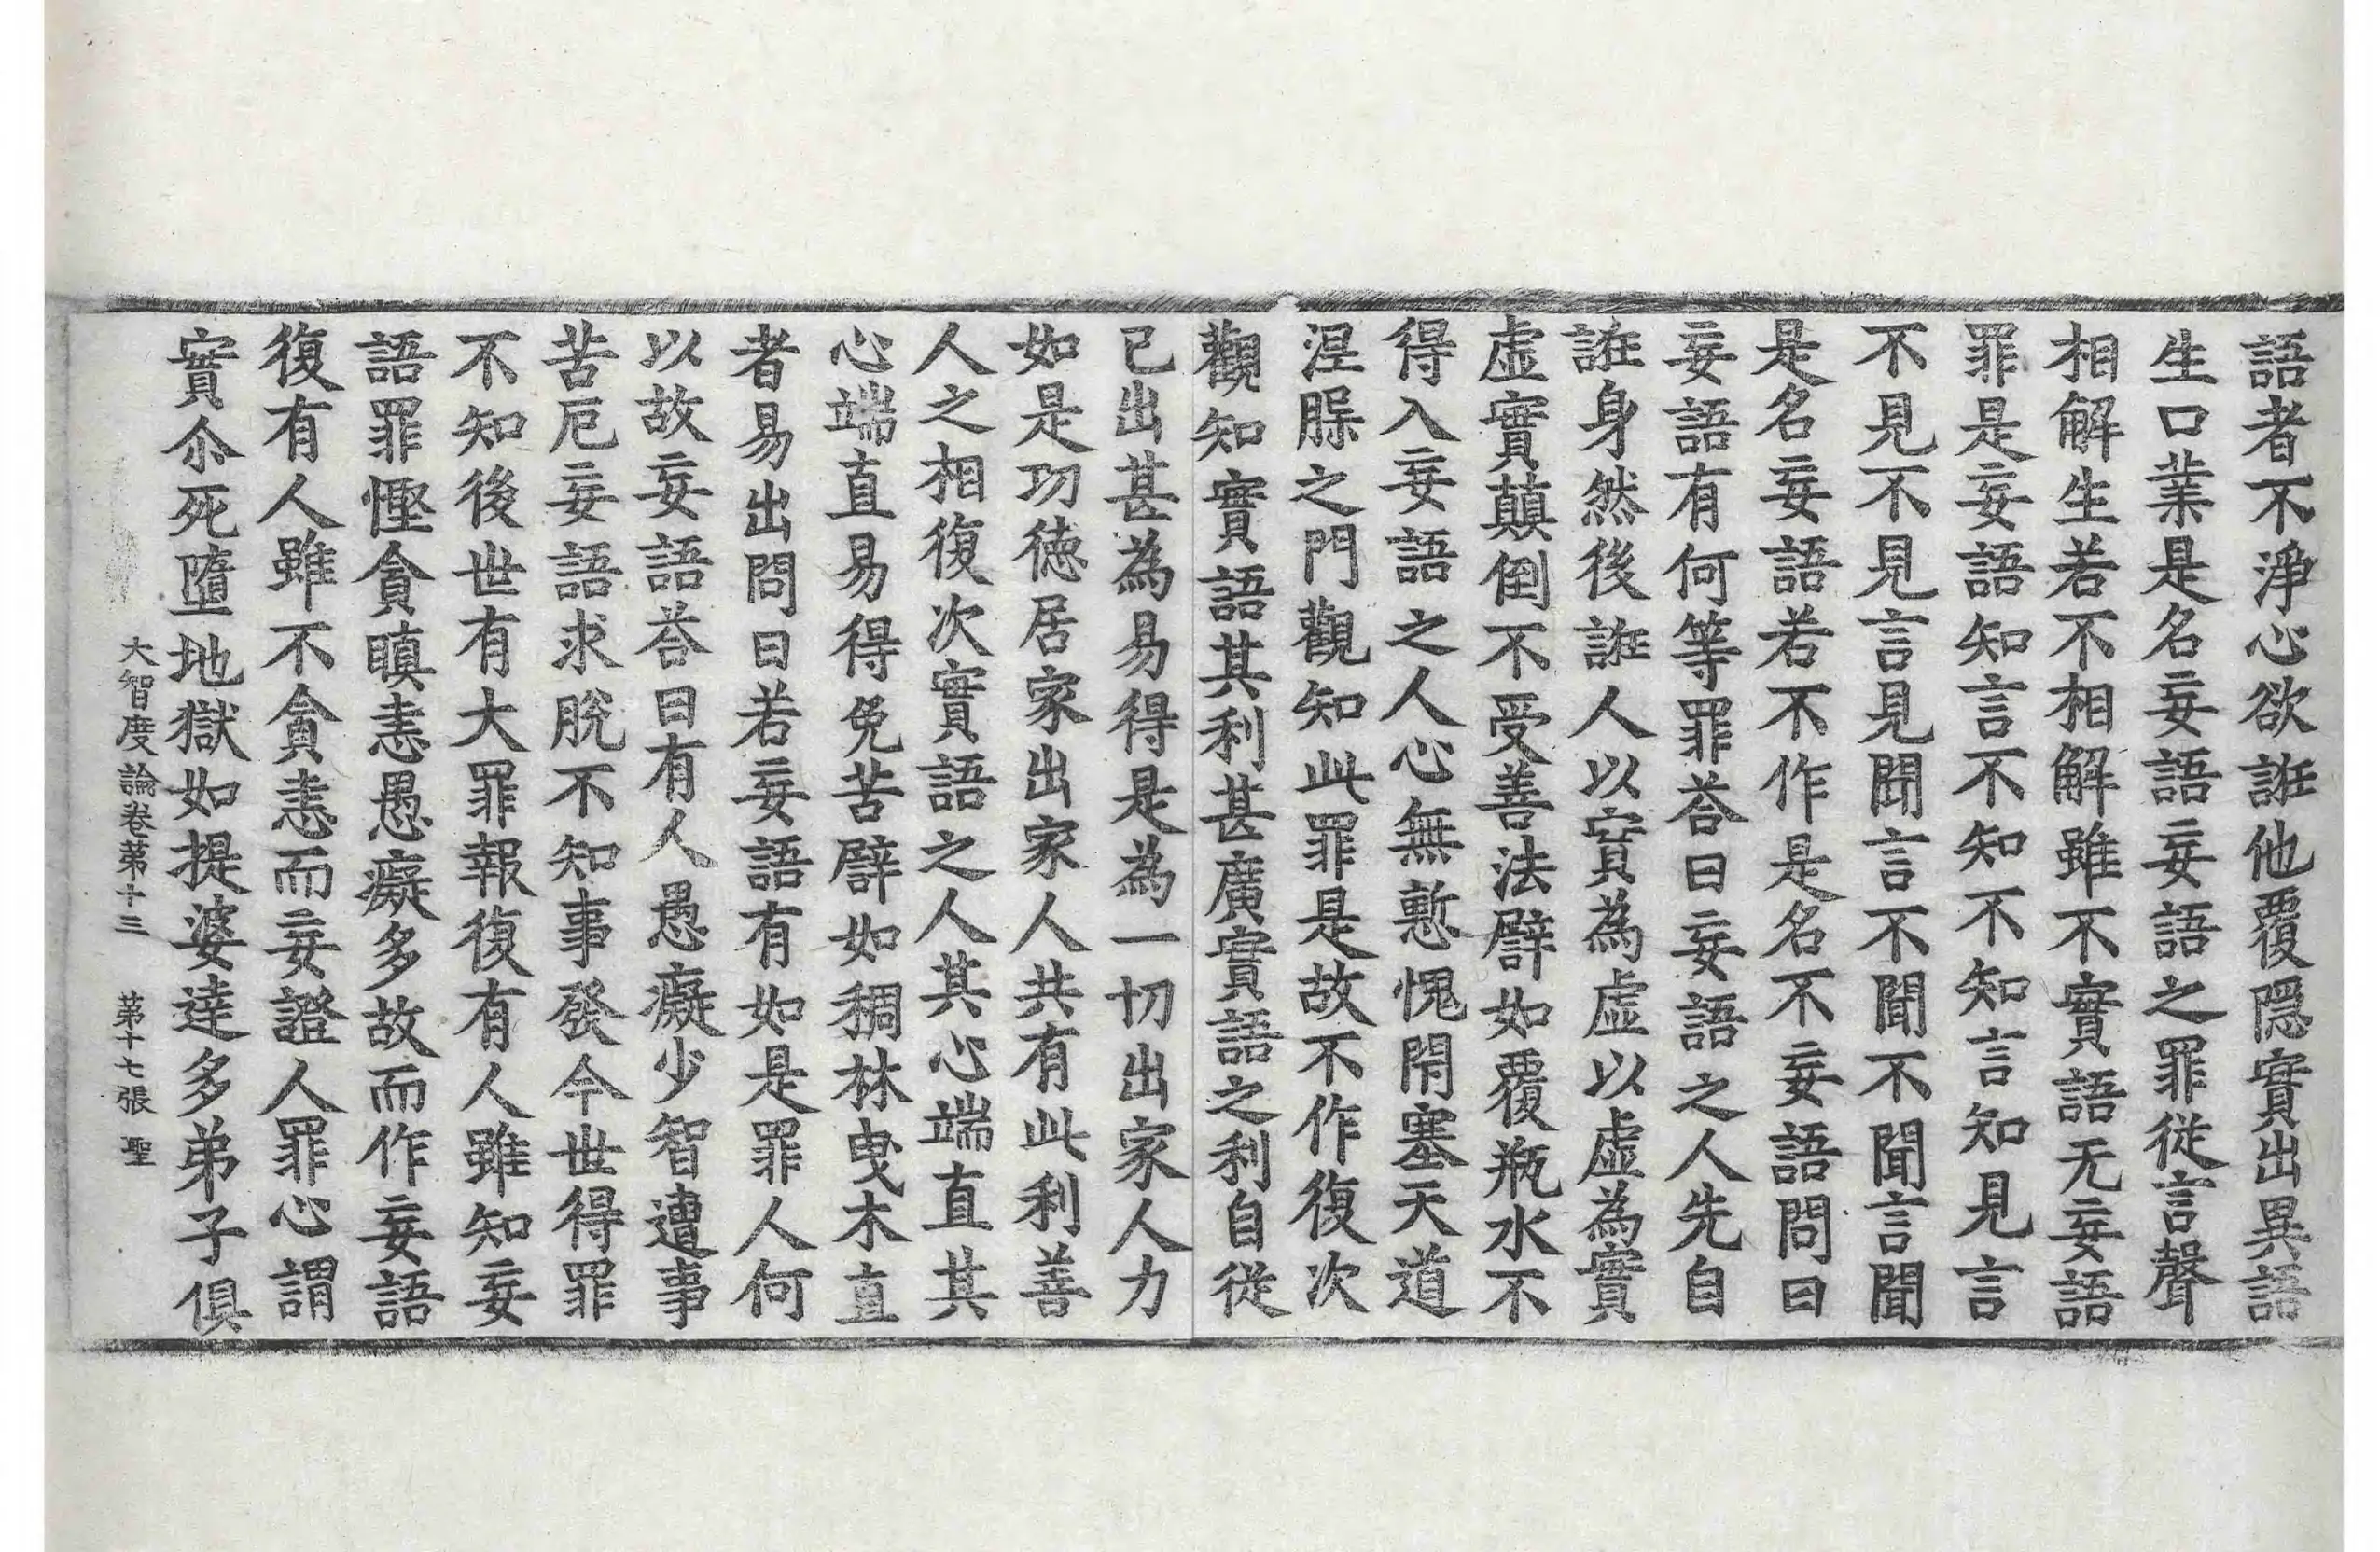 語者不淨心欲誑他覆隱實出異語
生口業是名妄語妄語之罪從言聲
相解生若不相解雖不實語无妄語
罪是妄語知言不知不知言知見言
不見不見言見聞言不聞不聞言聞
是名妄語若不作是名不妄語問曰
妄語有何等罪荅曰妄語之人先自
誑身然後誑人以實為虛以虛為實
虛實顛倒不受善法譬如覆瓶水不
得入妄語之人心無慙愧閇塞天道
涅脲之門觀知此罪是故不作復次
觀知實語其利甚廣實語之利自從
已出甚為易得是為一切出家人力
如是功徳居家出家人共有此利善
人之相復次實語之人其心端直其
心端直易得免苦譬如稠林曳木直
者易出問曰若妄語有如是罪人何
以故妄語荅曰有人愚癡少智遭事
苦厄妄語求脫不知事發今世得罪
不知後世有大罪報復有人雖知妄
語罪慳貪瞋恚愚癡多故而作妄語
復有人雖不貪恚而妄證人罪心謂
實尒死墮地獄如提婆達多弟子俱
大智度論卷苐十三 苐十七張 聖